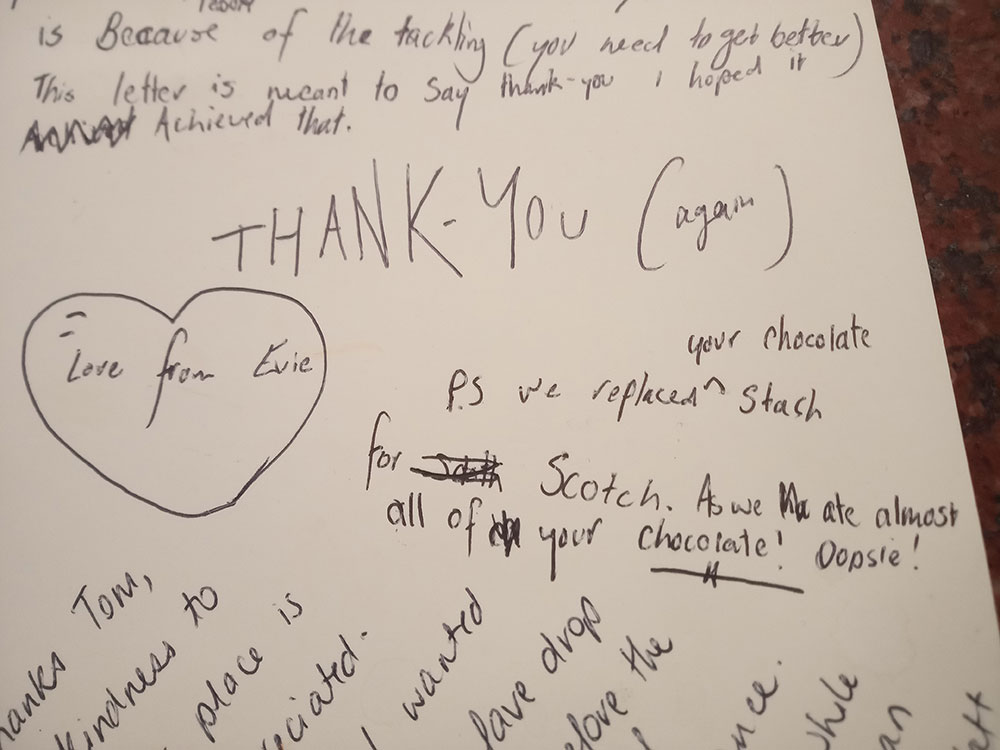 is Because of the tackling (you need to get better)
This letter is meant to say thank-you i hoped it
Achieved that.
THANK-YOU (again)
Love from Evie
your chocolate
P.S we replaced^ Stash
for Scotch. As we ate almost
all of your chocolate! Oopsie!
Tom,
kindness to
place is
wanted
drop
the